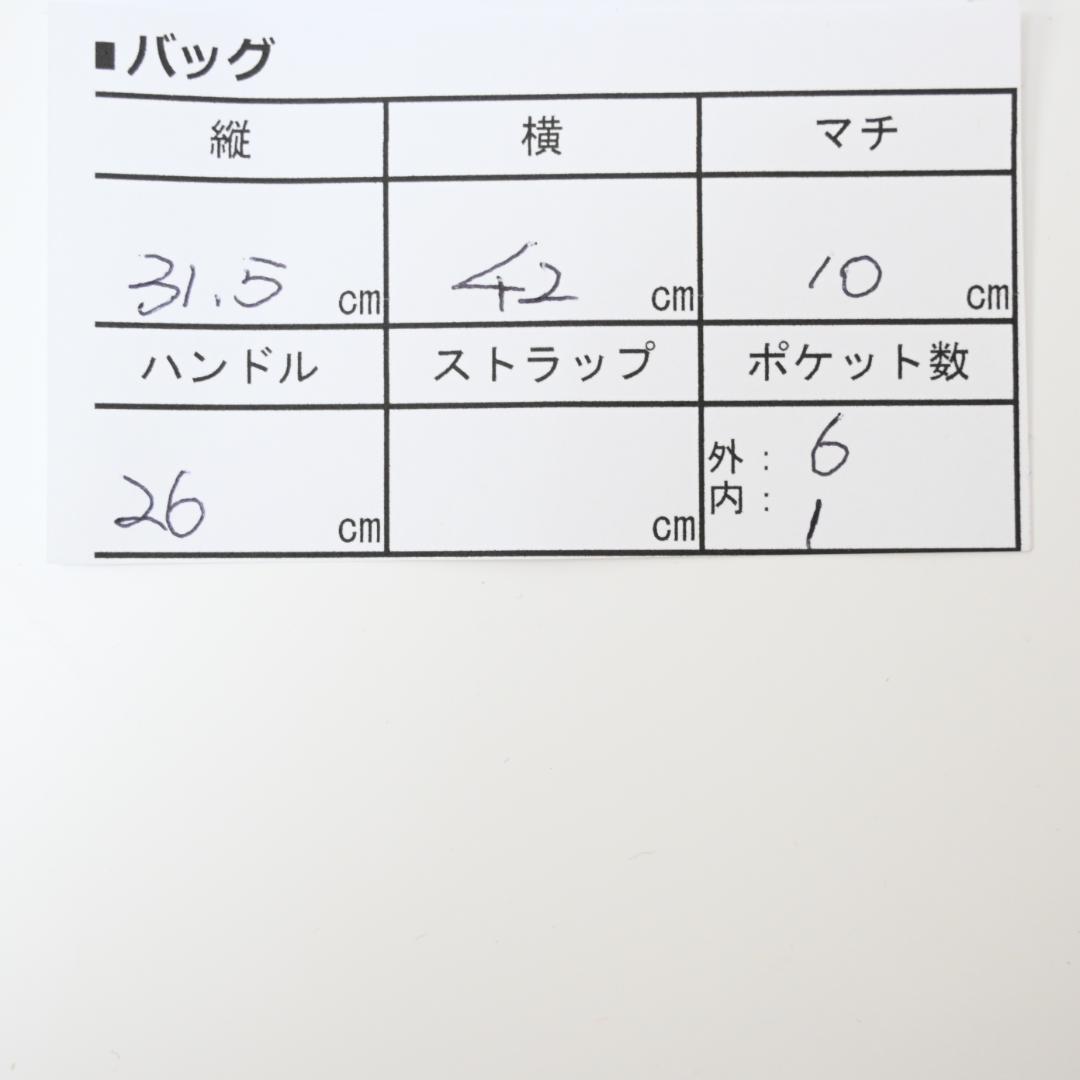 ■バッグ
縦 横 マチ
31.5 cm 42 cm 10 cm
ハンドル ストラップ ポケット数
外： 6
26 cm cm 内： 1